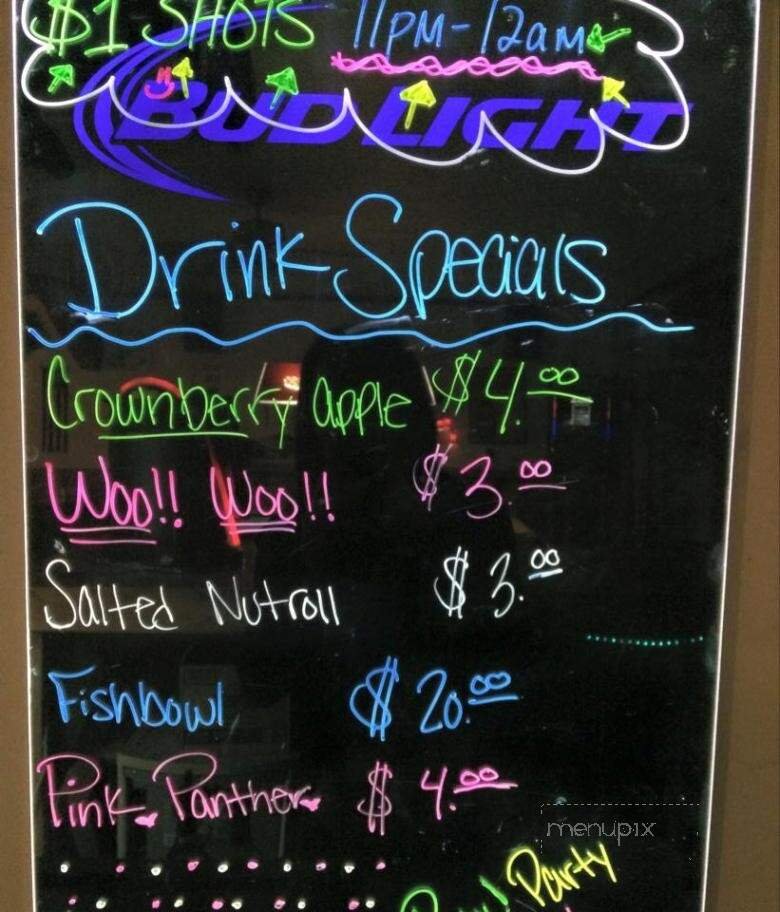 $1 SHOTS 11PM-12am
BUD LIGHT
Drink Specials
Crownberry apple $4.00
Woo!! Woo!! $3.00
Salted Nutroll $3.00
Fishbowl $20.00
Pink Panther $4.00
menupix
Party